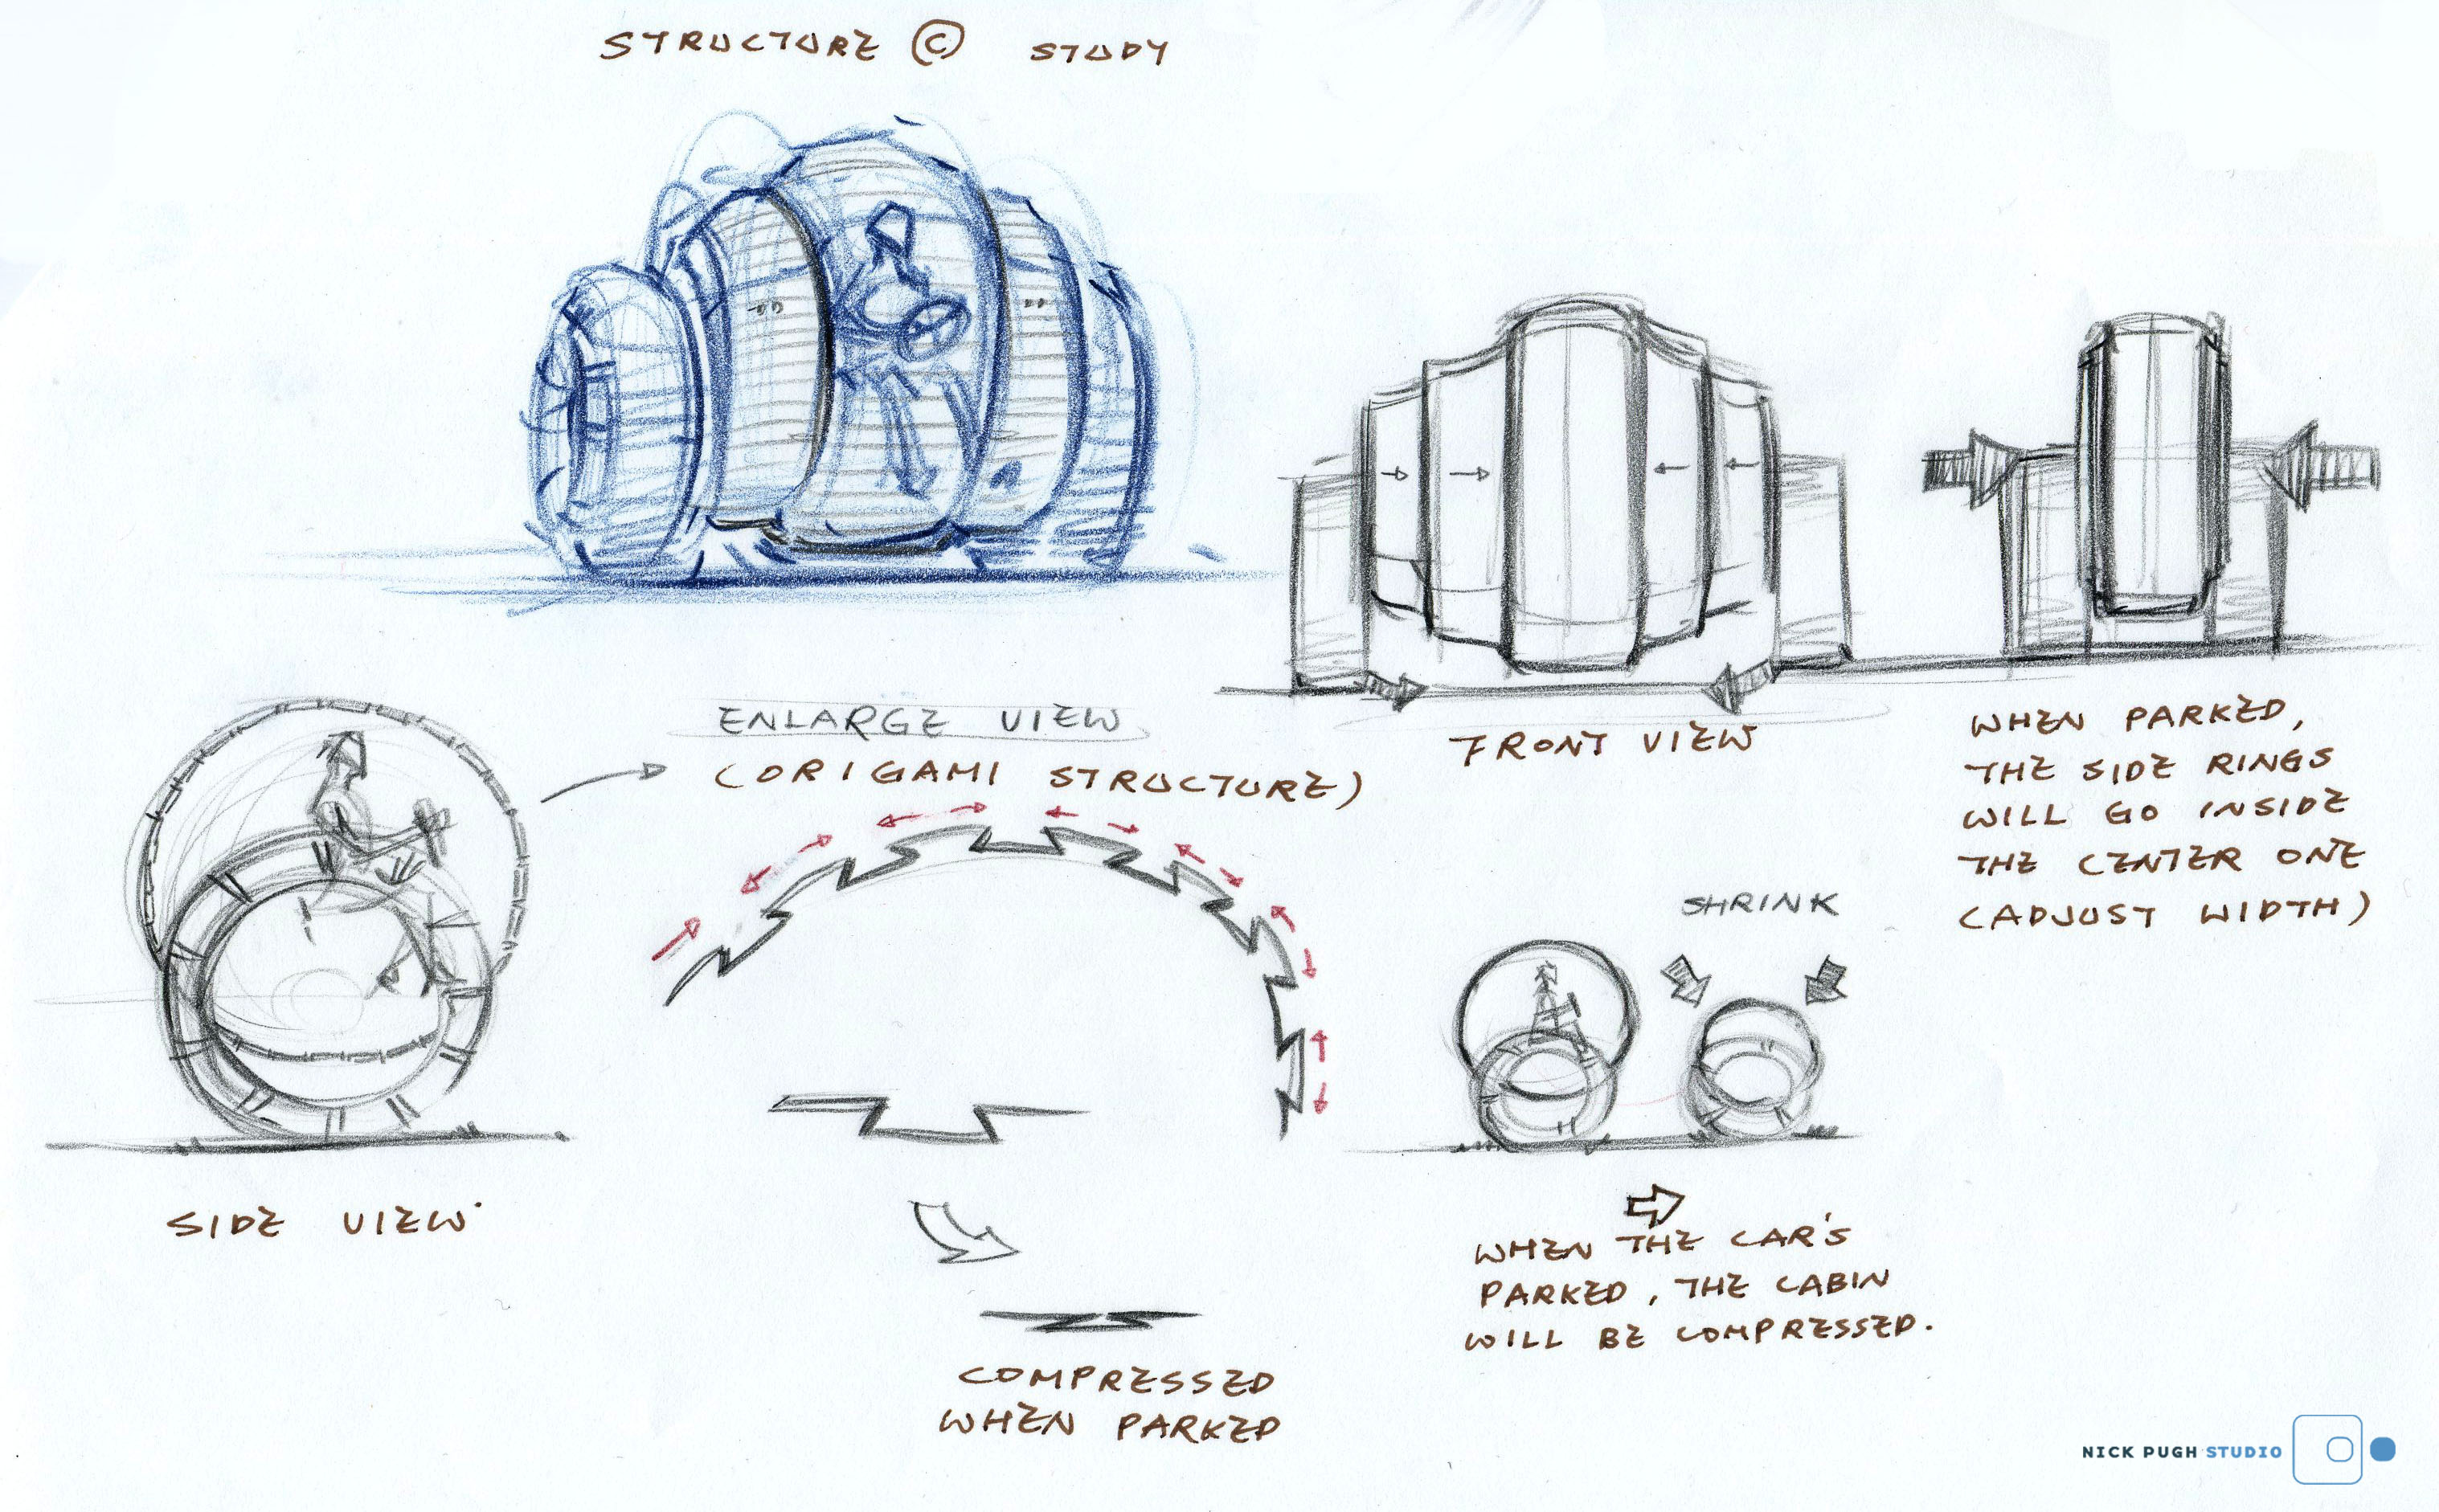 STRUCTURE © STUDY
ENLARGE VIEW
(ORIGAMI STRUCTURE)
FRONT VIEW
WHEN PARKED,
THE SIDE RINGS
WILL GO INSIDE
THE CENTER ONE
(ADJUST WIDTH)
SHRINK
SIDE VIEW
WHEN THE CAR'S
PARKED, THE CABIN
WILL BE COMPRESSED.
COMPRESSED
WHEN PARKED
NICK PUGH STUDIO